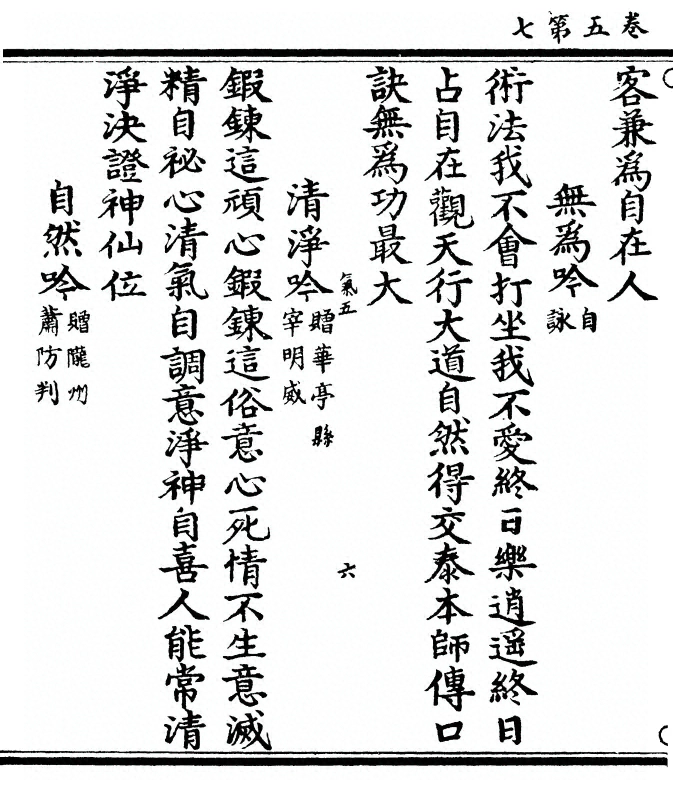 卷五第七
客兼爲自在人
無爲吟自詠
術法我不會打坐我不愛終日樂逍遥終日
占自在觀天行大道自然得交泰本師傳口
訣無爲功最大
氣五
六
清淨吟贈華亭縣宰明威
鍜鍊這頑心鍜鍊這俗意心死情不生意滅
精自祕心清氣自調意淨神自喜人能常清
淨決證神仙位
自然吟贈隴州蕭防判